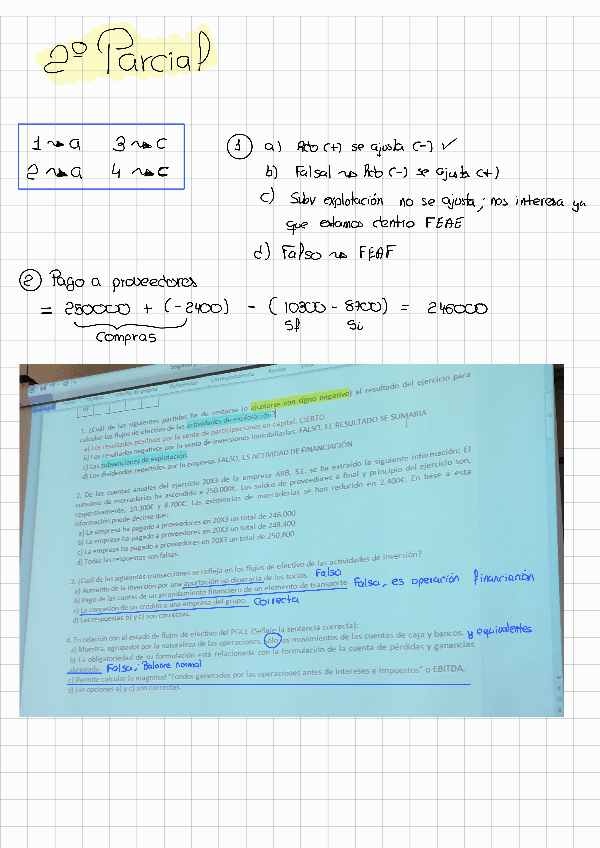 2º Parcial
1 ⇝ a 3 ⇝ c
2 ⇝ a 4 ⇝ c
① a) Rdo (+) se ajusta (-) ✓
b) Falsal ⇝ Rdo (-) se ajusta (+)
c) Subv explotación no se ajusta; nos interesa ya
que estamos dentro FEAE
d) Falso ⇝ FEAF
② Pago a proveedores
= 250000 + (-2400) - (10300 - 8700) = 246000
Compras Sf Si
1. ¿Cuál de las siguientes partidas ha de restarse (o ajustarse con signo negativo) al resultado del ejercicio para
calcular los flujos de efectivo de las actividades de explotación?
a) Los resultados positivos por la venta de participaciones en capital. CIERTO
b) Los resultados negativos por la venta de inversiones inmobiliarias. FALSO, EL RESULTADO SE SUMARIA
c) Las subvenciones de explotación.
d) Los dividendos repartidos por la empresa. FALSO, ES ACTIVIDAD DE FINANCIACIÓN
2. De las cuentas anuales del ejercicio 20X3 de la empresa ARB, S.L. se ha extraído la siguiente información: El
consumo de mercaderías ha ascendido a 250.000€. Los saldos de proveedores a final y principio del ejercicio son,
respectivamente, 10.300€ y 8.700€. Las existencias de mercaderías se han reducido en 2.400€. En base a esta
información puede decirse que:
a) La empresa ha pagado a proveedores en 20X3 un total de 246.000
b) La empresa ha pagado a proveedores en 20X3 un total de 248.400
c) La empresa ha pagado a proveedores en 20X3 un total de 250.800
d) Todas las respuestas son falsas.
3. ¿Cuál de las siguientes transacciones se refleja en los flujos de efectivo de las actividades de inversión?
a) Aumento de la inversión por una aportación no dineraria de los socios. Falso
b) Pago de las cuotas de un arrendamiento financiero de un elemento de transporte. Falsa, es operación financiación
c) La concesión de un crédito a una empresa del grupo. Correcta
d) Las respuestas b) y c) son correctas.
4. En relación con el estado de flujos de efectivo del PGC: (Señale la sentencia correcta):
a) Muestra, agrupados por la naturaleza de las operaciones, sólo los movimientos de las cuentas de caja y bancos. y equivalentes
b) La obligatoriedad de su formulación está relacionada con la formulación de la cuenta de pérdidas y ganancias
abreviada. Falsa, Balance normal
c) Permite calcular la magnitud "Fondos generados por las operaciones antes de intereses e impuestos" o EBITDA.
d) Las opciones a) y c) son correctas.